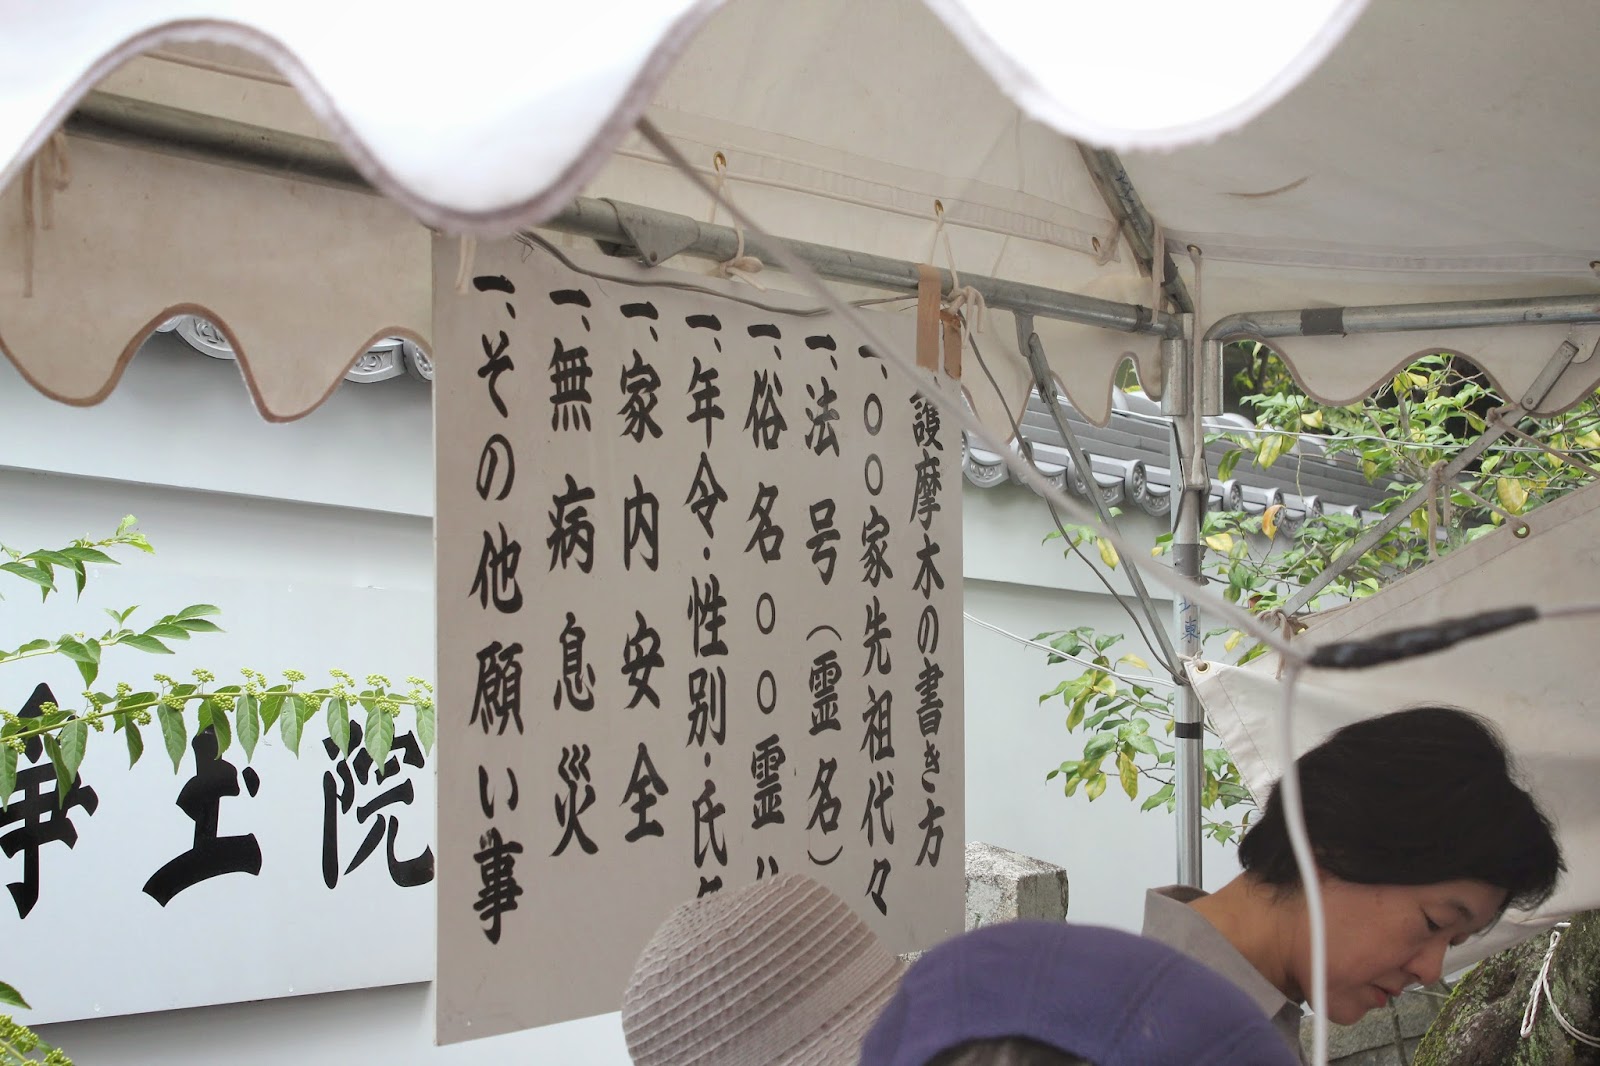 護摩木の書き方
一、〇〇家先祖代々
一、法号（霊名）
一、俗名〇〇霊
一、年令・性別・氏
一、家内安全
一、無病息災
一、その他願い事
土院